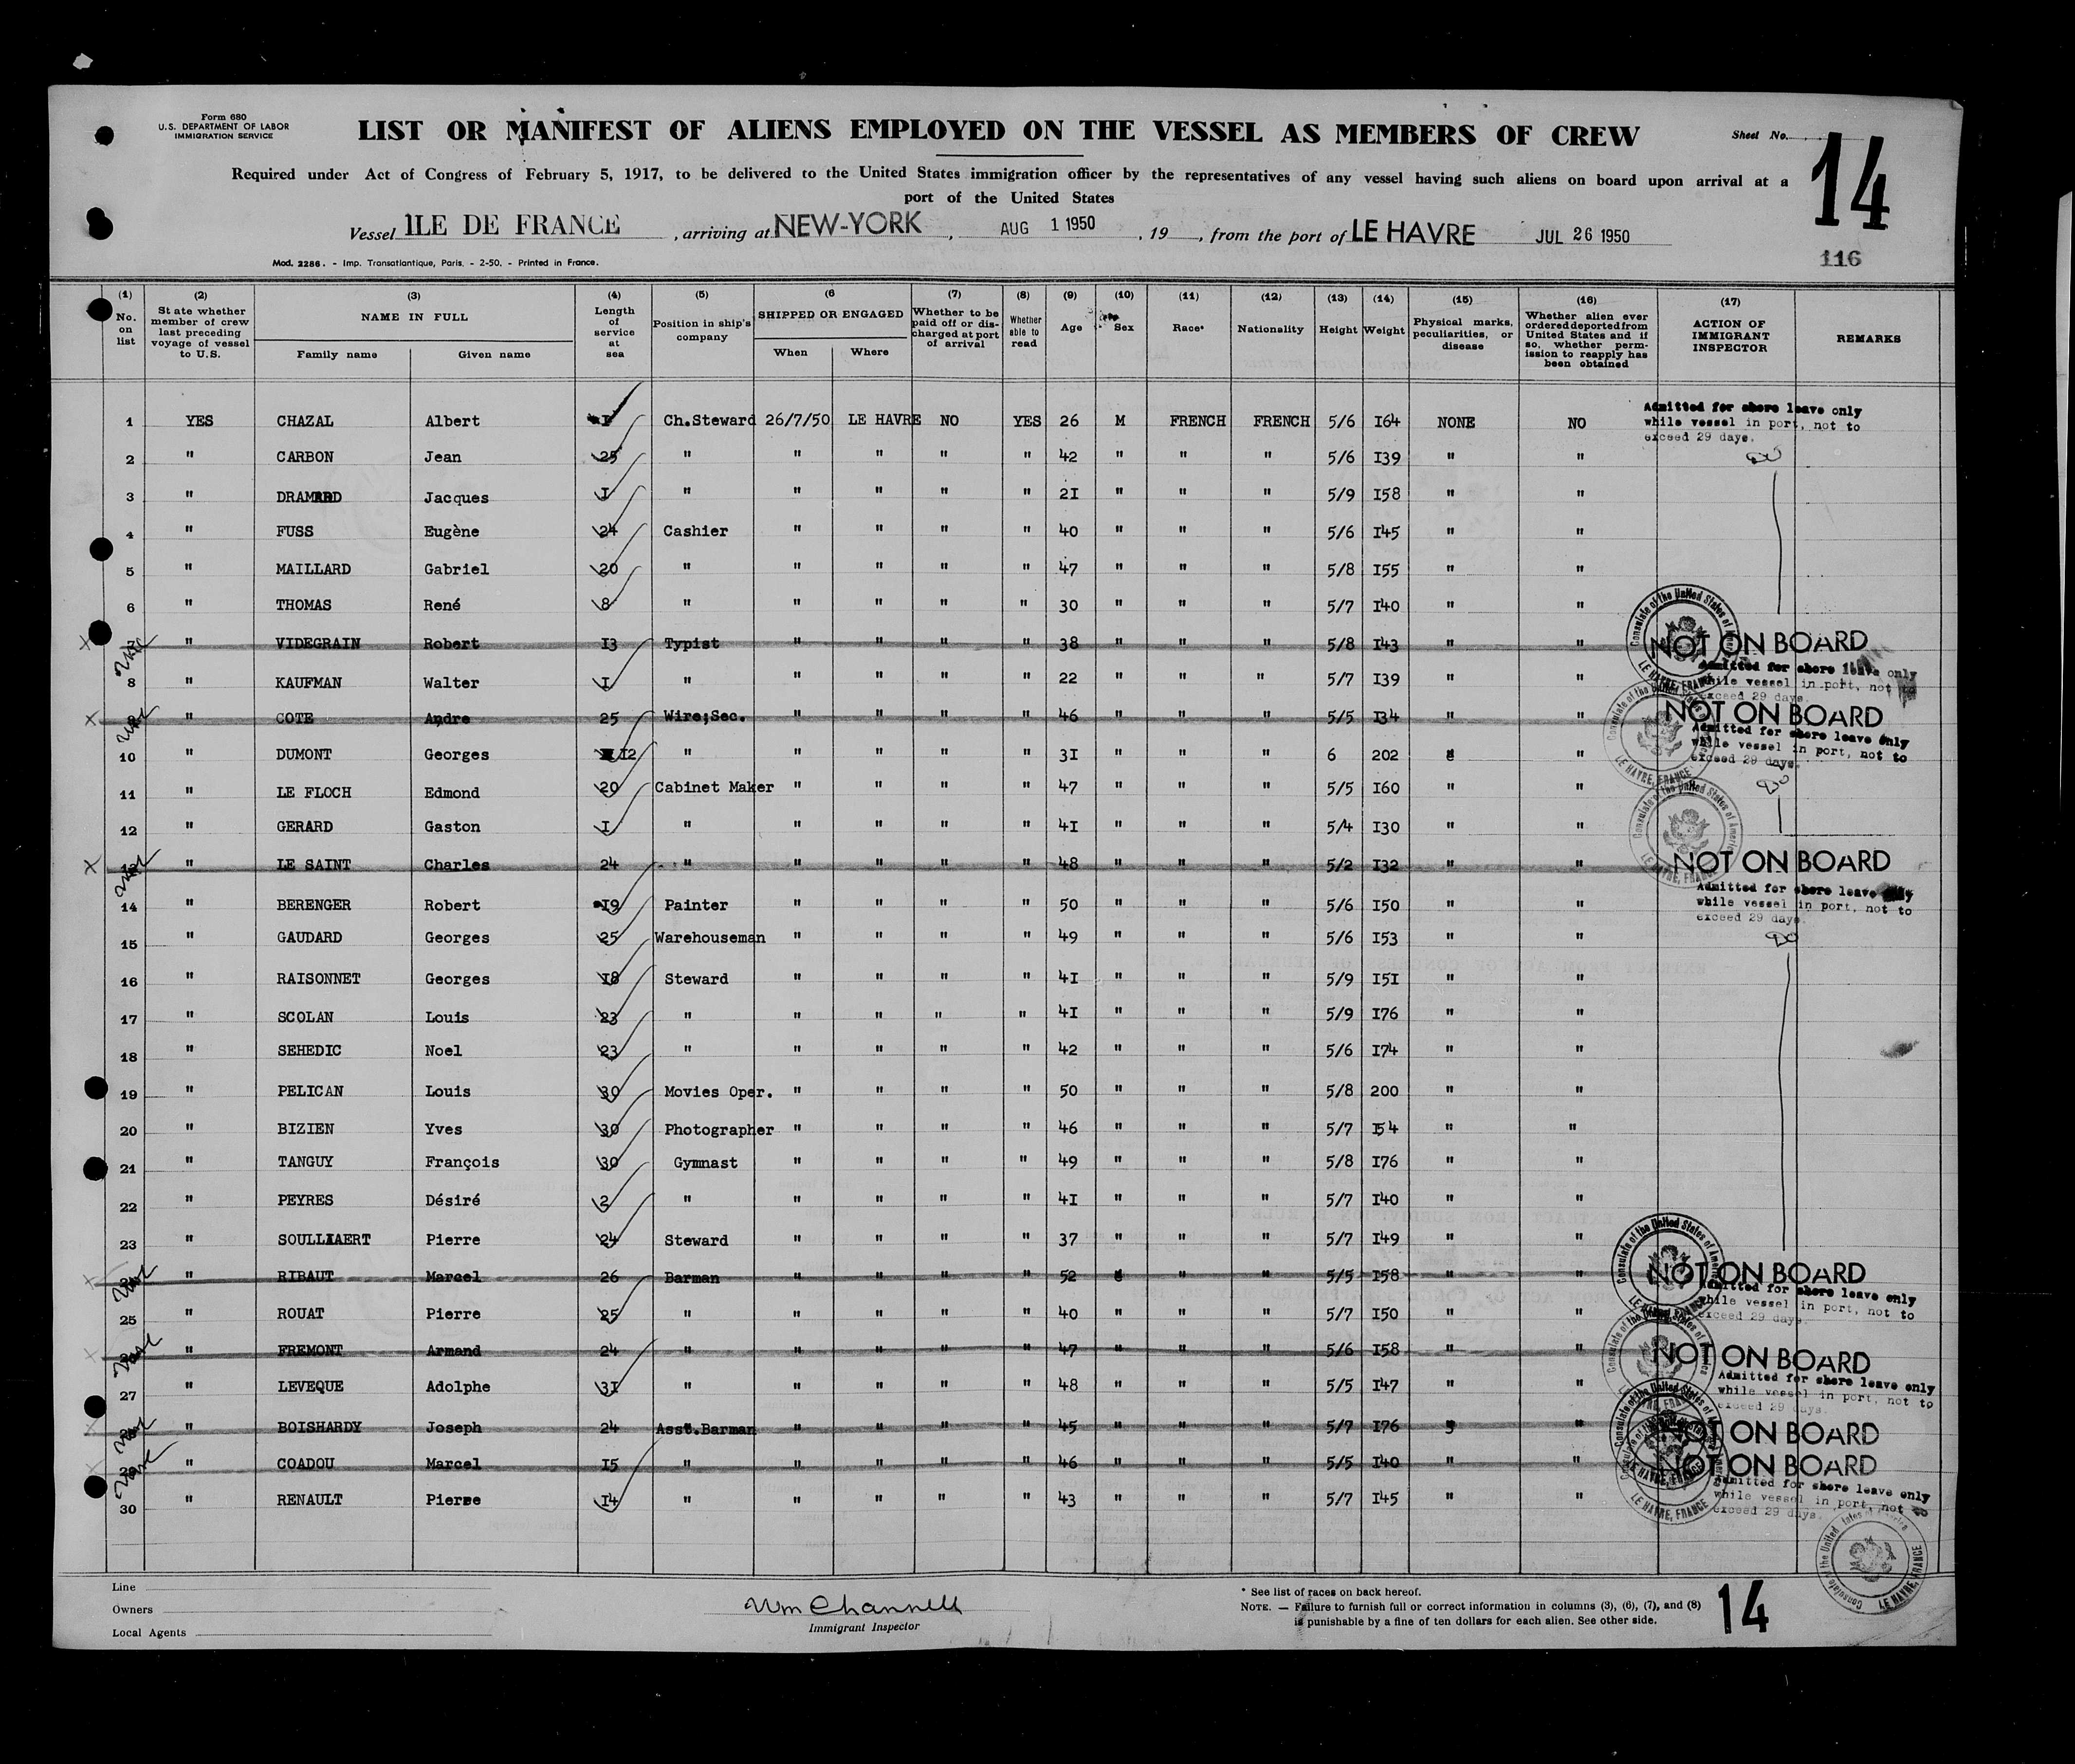 Form 680
U.S. DEPARTMENT OF LABOR
IMMIGRATION SERVICE
LIST OR MANIFEST OF ALIENS EMPLOYED ON THE VESSEL AS MEMBERS OF CREW
Sheet No. 14
Required under Act of Congress of February 5, 1917, to be delivered to the United States immigration officer by the representatives of any vessel having such aliens on board upon arrival at a
port of the United States
Vessel ILE DE FRANCE, arriving at NEW-YORK, AUG 1 1950, 19, from the port of LE HAVRE JUL 26 1950
Mod. 2286. - Imp. Transatlantique, Paris. - 2-50. - Printed in France.
116
(1) No. on list (2) State whether member of crew last preceding voyage of vessel to U.S. (3) NAME IN FULL Family name Given name (4) Length of service at sea (5) Position in ship's company (6 SHIPPED OR ENGAGED When Where (7) Whether to be paid off or discharged at port of arrival (8) Whether able to read (9) Age (10) Sex (11) Race* (12) Nationality (13) Height (14) Weight (15) Physical marks, peculiarities, or disease (16) Whether alien ever ordered deported from United States and if so, whether permission to reapply has been obtained (17) ACTION OF IMMIGRANT INSPECTOR REMARKS
1 YES CHAZAL Albert I Ch.Steward 26/7/50 LE HAVRE NO YES 26 M FRENCH FRENCH 5/6 I64 NONE NO Admitted for shore leave only while vessel in port, not to exceed 29 days.
2 " CARBON Jean 25 " " " " " 42 " " " 5/6 I39 " "
3 " DRAMARD Jacques I " " " " " 2I " " " 5/9 I58 " "
4 " FUSS Eugène 24 Cashier " " " " 40 " " " 5/6 I45 " "
5 " MAILLARD Gabriel 20 " " " " " 47 " " " 5/8 I55 " "
6 " THOMAS René 8 " " " " " 30 " " " 5/7 I40 " "
7 " VIDEGRAIN Robert I3 Typist " " " " 38 " " " 5/8 I43 " " NOT ON BOARD
8 " KAUFMAN Walter I " " " " " 22 " " " 5/7 I39 " " Admitted for shore leave only while vessel in port, not to exceed 29 days.
9 " COTE Andre 25 Wire;Sec. " " " " 46 " " " 5/5 I34 " " NOT ON BOARD
10 " DUMONT Georges I2 " " " " " 3I " " " 6 202 " Admitted for shore leave only while vessel in port, not to exceed 29 days.
11 " LE FLOCH Edmond 20 Cabinet Maker " " " " 47 " " " 5/5 I60 " "
12 " GERARD Gaston I " " " " " 4I " " " 5/4 I30 " "
13 " LE SAINT Charles 24 " " " " " 48 " " " 5/2 I32 " " NOT ON BOARD
14 " BERENGER Robert I9 Painter " " " " 50 " " " 5/6 I50 " " Admitted for shore leave only while vessel in port, not to exceed 29 days.
15 " GAUDARD Georges 25 Warehouseman " " " " 49 " " " 5/6 I53 " "
16 " RAISONNET Georges I8 Steward " " " " 4I " " " 5/9 I5I " "
17 " SCOLAN Louis 23 " " " " " 4I " " " 5/9 I76 " "
18 " SEHEDIC Noel 23 " " " " " 42 " " " 5/6 I74 " "
19 " PELICAN Louis 30 Movies Oper. " " " " 50 " " " 5/8 200 " "
20 " BIZIEN Yves 30 Photographer " " " " 46 " " " 5/7 I54 " "
21 " TANGUY François 30 Gymnast " " " " 49 " " " 5/8 I76 " "
22 " PEYRES Désiré 2 " " " " " 4I " " " 5/7 I40 " "
23 " SOULLIAERT Pierre 24 Steward " " " " 37 " " " 5/7 I49 " "
24 " RIBAUT Marcel 26 Barman " " " " 52 " " 5/5 I58 " " NOT ON BOARD
25 " ROUAT Pierre 25 " " " " " 40 " " " 5/7 I50 " " Admitted for shore leave only while vessel in port, not to exceed 29 days.
26 " FREMONT Armand 24 " " " " " 47 " " " 5/6 I58 " " NOT ON BOARD
27 " LEVEQUE Adolphe 3I " " " " " 48 " " " 5/5 I47 " " Admitted for shore leave only while vessel in port, not to exceed 29 days.
28 " BOISHARDY Joseph 24 Asst.Barman " " " " 45 " " " 5/7 I76 " NOT ON BOARD
29 " COADOU Marcel I5 " " " " " 46 " " " 5/5 I40 " " NOT ON BOARD
30 " RENAULT Pierre I4 " " " " " 43 " " " 5/7 I45 " " Admitted for shore leave only while vessel in port, not to exceed 29 days.
Consulate of the United States of America
LE HAVRE, FRANCE
Line
Owners
Local Agents
Wm Channell
Immigrant Inspector
* See list of races on back hereof.
NOTE. — Failure to furnish full or correct information in columns (3), (6), (7), and (8)
is punishable by a fine of ten dollars for each alien. See other side.
14